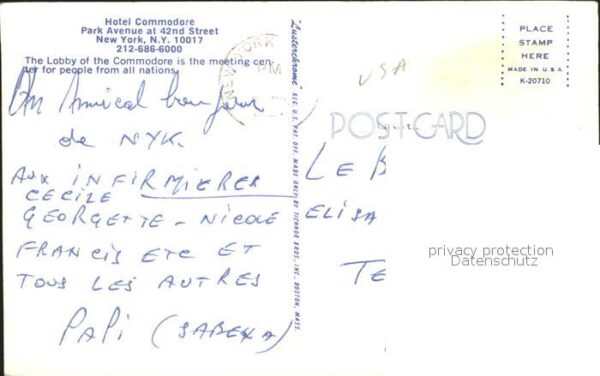 Hotel Commodore
Park Avenue at 42nd Street
New York, N.Y. 10017
212-686-6000
The Lobby of the Commodore is the meeting cen-
ter for people from all nations.
Un Amical bonjour
de NYK.
AUX INFIRMIERES
CECILE
GEORGETTE - NICOLE
FRANCIS ETC ET
TOUS LES AUTRES
PAPI (SABENA)
Lusterchrome REG. U.S. PAT. OFF. MADE ONLY BY TICHNOR BROS., INC., BOSTON, MASS.
NEW YORK
PM
USA
PLACE
STAMP
HERE
MADE IN U.S.A.
K-20710
POST CARD
LE B
ELISA
TE
privacy protection
Datenschutz